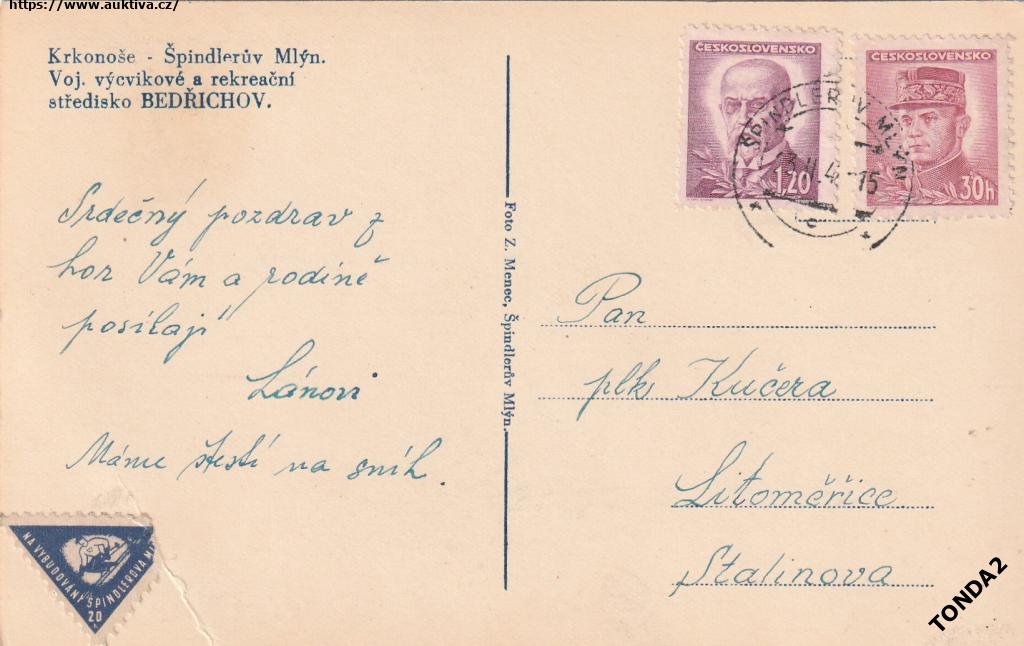 https://www.auktiva.cz/
Krkonoše - Špindlerův Mlýn.
Voj. výcvikové a rekreační
středisko BEDŘICHOV.
Srdečný pozdrav z
hor Vám a rodině
posílají
Lánovi
Máme štestí na sníh.
NA VYBUDOVÁNÍ ŠPINDLEROVA
20
Foto Z. Menec, Špindlerův Mlýn.
ČESKOSLOVENSKO
1,20
ČESKOSLOVENSKO
30h
ŠPINDLERŮV MLÝN
15
c
Pan
plk Kučera
Litoměřice
Stalinova
TONDA2